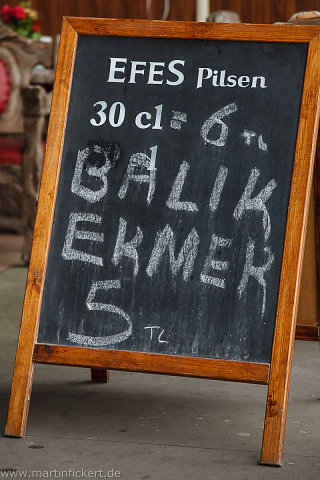 EFES Pilsen
30 cl = 6 TL
BALIK
EKMEK
5 TL
www.martinfickert.de